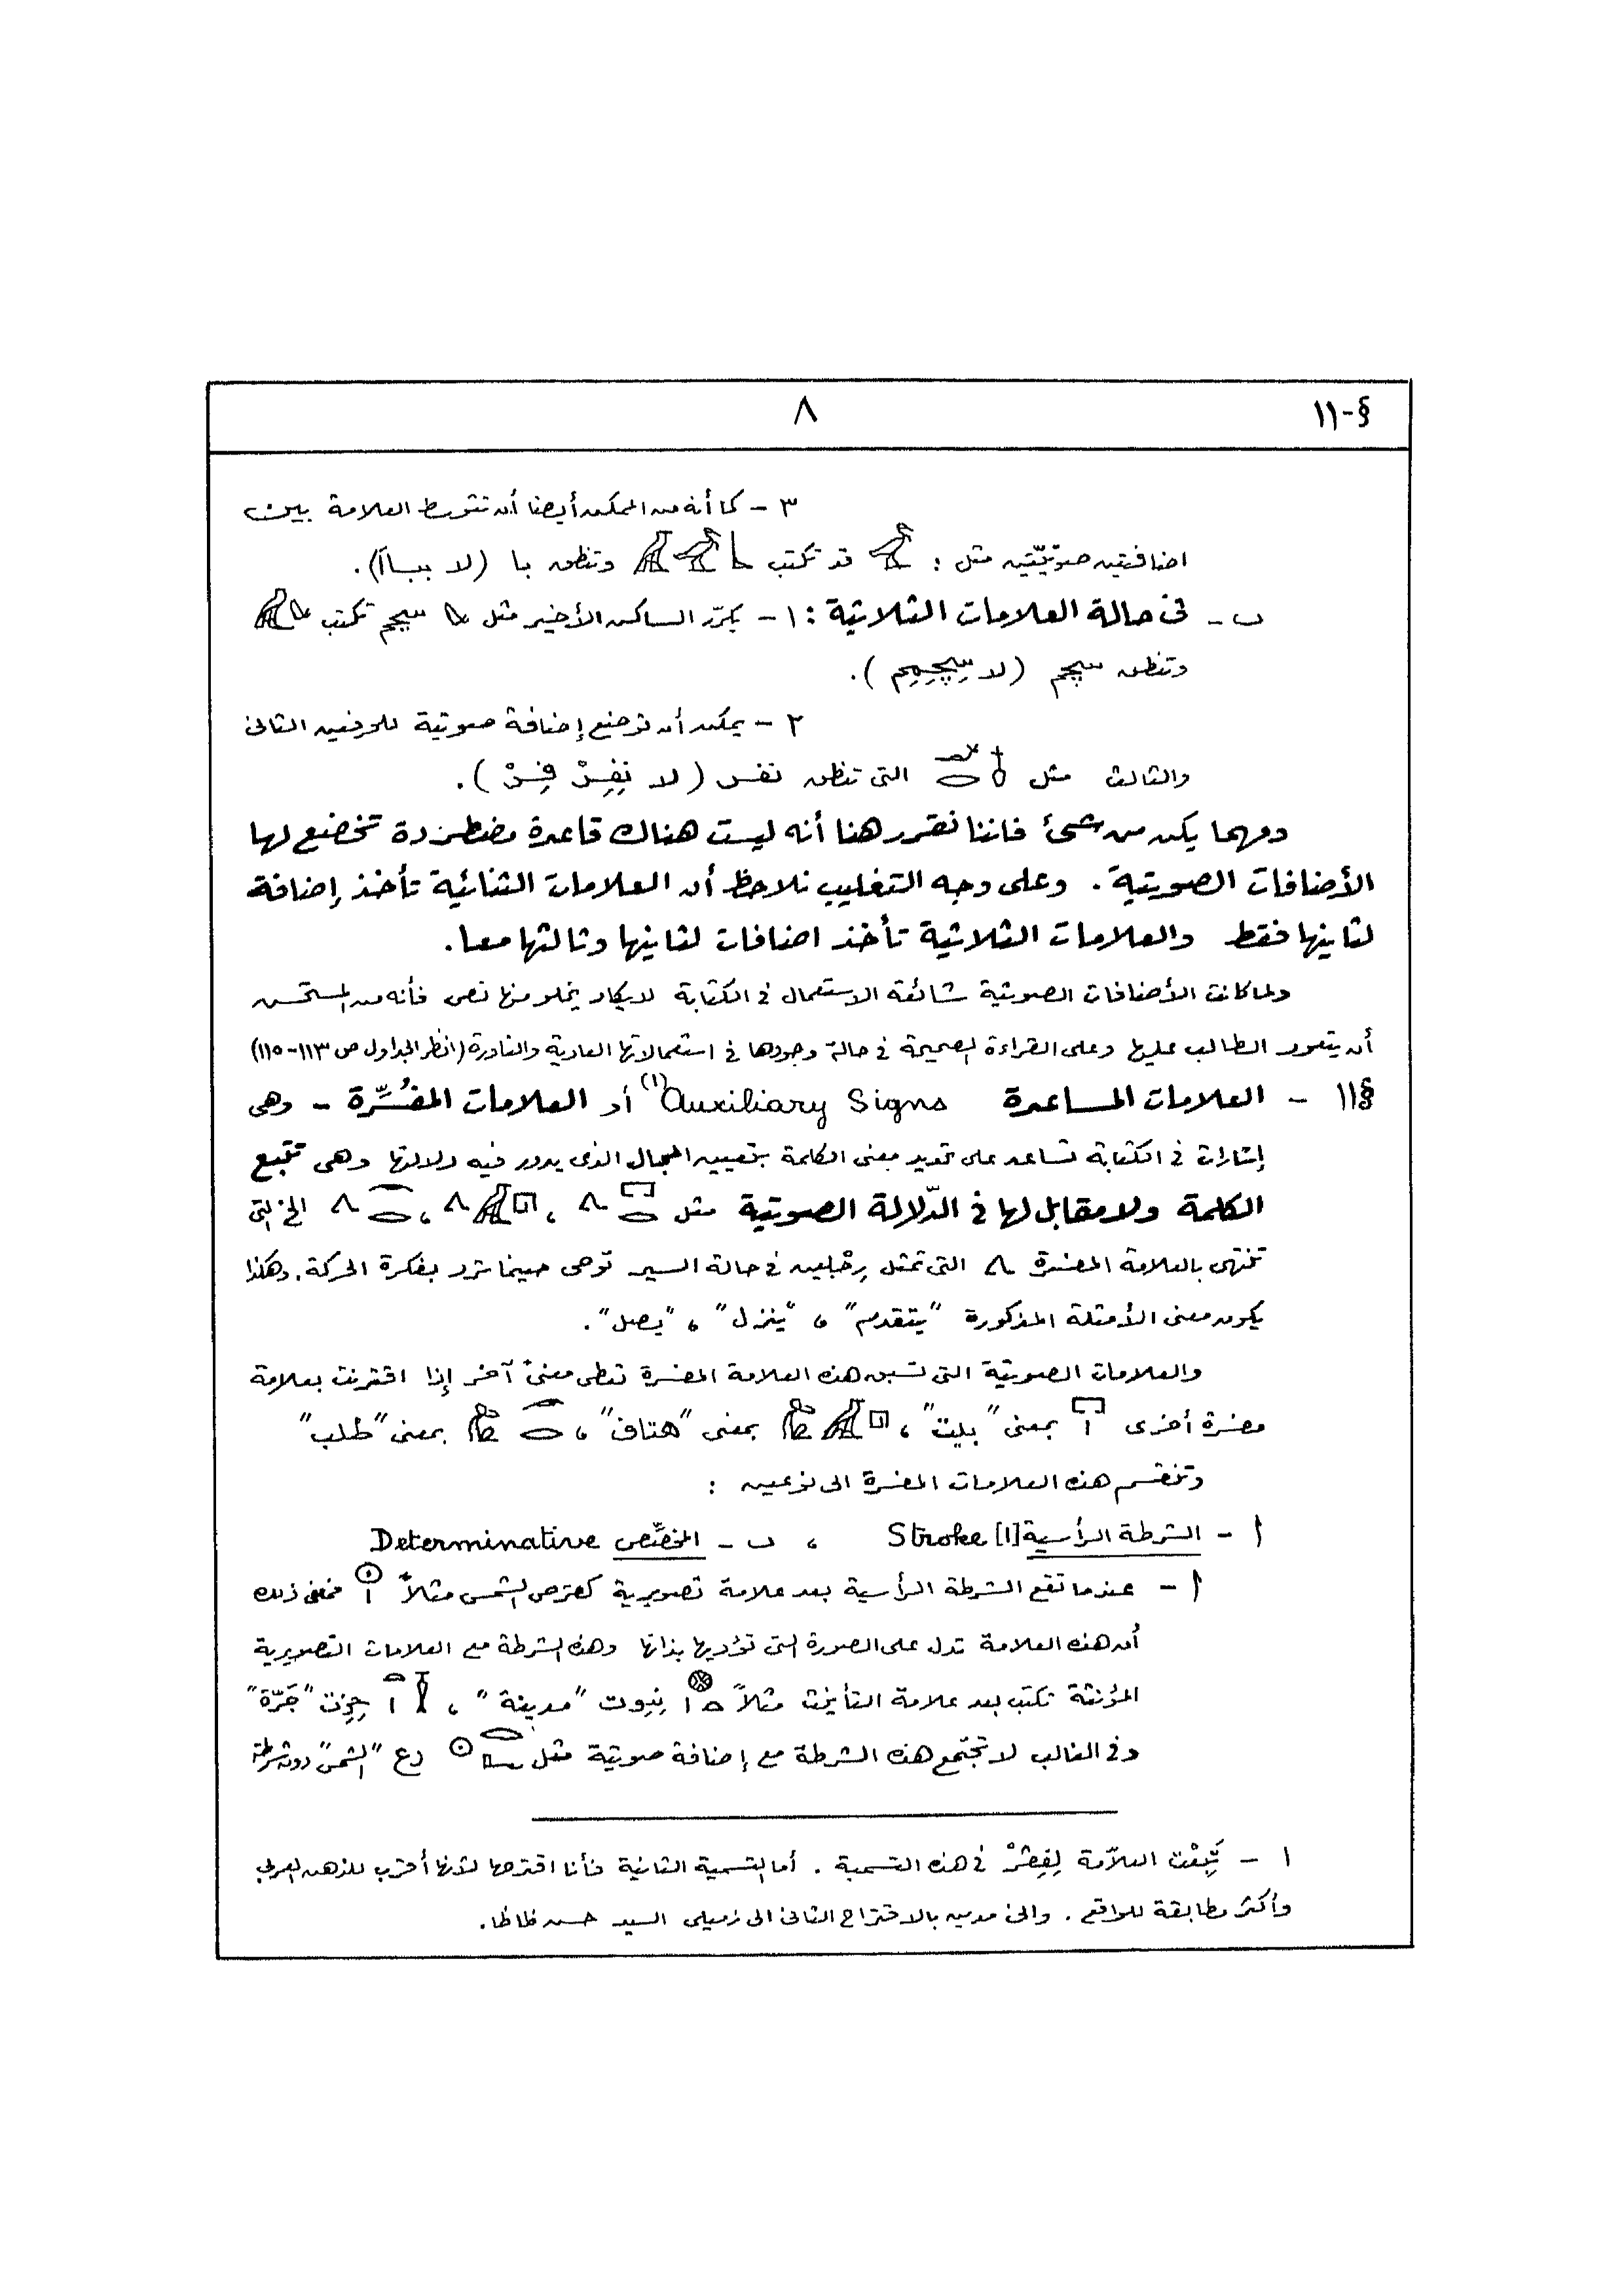 §-١١
٨
٣ - كما أنه من الممكن أيضا أن تتوسط العلامة بين
اضافتين صوتيّتين مثل : قد تكتب وتنطق با (لا ببأأ).
ب - فى حالة العلامات الثلاثية : ١ - يكرّر الساكن الأخير مثل سچم تكتب
وتنطق سچم (لا سِچِمِم).
٢ - يمكن أن توضع إضافة صوتية للحرفين الثانى
والثالث مثل التى تنطق نفر (لا نِفِرْ فِرْ).
ومهما يكن من شىء فاننا نقرر هنا أنه ليست هناك قاعدة مضطردة تخضع لها
الأضافات الصوتية. وعلى وجه التغليب نلاحظ أن العلامات الثنائية تأخذ إضافة
لثانيها فقط والعلامات الثلاثية تأخذ اضافات لثانيها وثالثها معا.
ولما كانت الأضافات الصوتية شائعة الاستعمال فى الكتابة لا يكاد يخلو منها نص فأنه من المستحسن
أن يتعود الطالب عليها وعلى القراءة الصحيحة فى حالة وجودها فى استعمالاتها العادية والنادرة (انظر الجداول ص ١١٣-١١٥)
§١١ - العلامات المساعدة Auxiliary Signs (١) أو العلامات المفسِّرة - وهى
إشارات فى الكتابة تساعد على تحديد معنى الكلمة بتعيين المجال الذى يدور فيه دلالتها وهى تتبع
الكلمة ولا مقابل لها فى الدّلالة الصوتية مثل ، ، الخ التى
تنتهى بالعلامة المفسرة التى تمثل رِجْلين فى حالة السير توحى حينما ترد بفكرة الحركة. وهكذا
يكون معنى الأمثلة المذكورة "يتقدم" ، "ينزل" ، "يصل".
والعلامات الصوتية التى تسبق هذه العلامة المفسرة تعطى معنىً آخر إذا اقترنت بعلامة
مفسرة أخرى بمعنى "بيت" ، بمعنى "هتاف" ، بمعنى "طلب"
وتنقسم هذه العلامات المفسرة الى نوعين :
أ - الشرطة الرأسية [١] Stroke ، ب - المخصِّص Determinative
أ - عندما تقع الشرطة الرأسية بعد علامة تصويرية كقرص الشمس مثلاً فمعنى ذلك
أن هذه العلامة تدل على الصورة التى تؤديها بذاتها وهذه الشرطة مع العلامات التصويرية
المؤنثة تكتب بعد علامة التأنيث مثلاً نِيوت "مدينة" ، حِزِت "جَرّة"
وفى الغالب لا تجتمع هذه الشرطة مع إضافة صوتية مثل رع "الشمس" دون شرطة
١ - تَبِعْت العلاّمة لِفِبْفِرْ فى هذه التسمية. أما التسمية الثانية فأنا اقترحها لأنها أقرب للذهن العربى
وأكثر مطابقة للواقع. وإنى مدين بالاقتراح الثانى الى زميلى السيد حسن ظاظا.